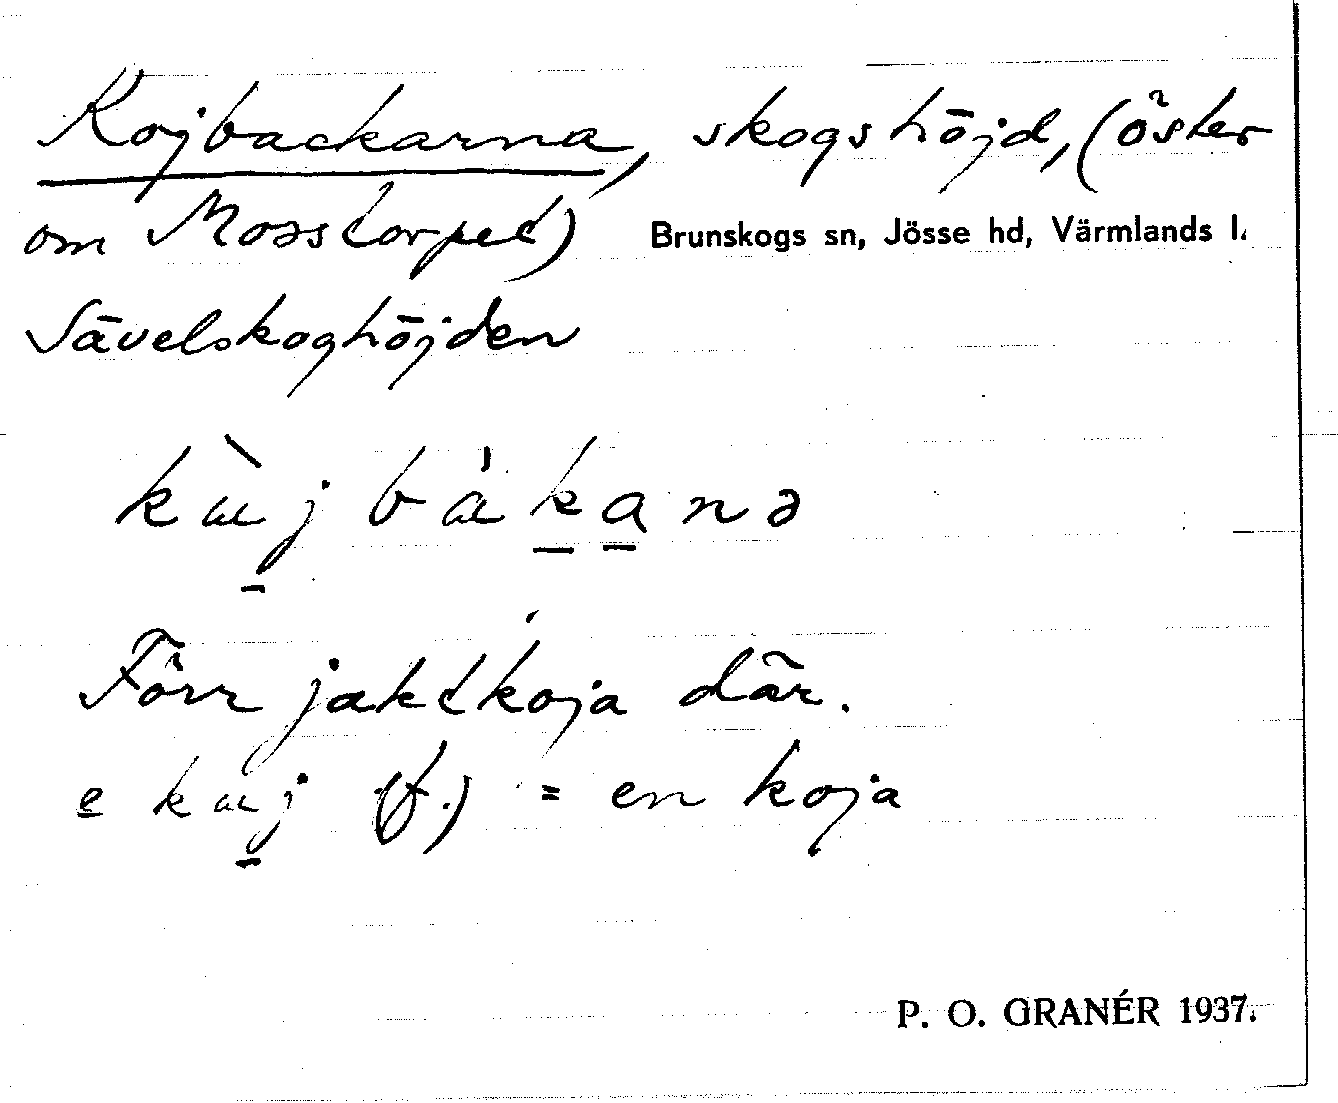 Kojbackarna, skogshöjd, (öster
om Mosstorpet) Brunskogs sn, Jösse hd, Värmlands l.
Sävelskoghöjden
kɯ̀j bɯ́kanə
Förr jaktkoja där.
e kɯj (f.) = en koja
P. O. GRANÉR 1937.